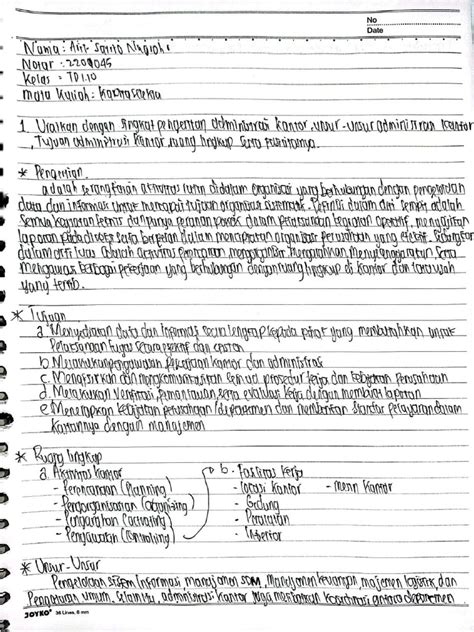 No
Date
Nama :
Notar : 2201045
Kelas : TD 1.10
Mata Kuliah :
1. Uraikan dengan singkat pengertian administrasi kantor, unsur-unsur administrasi kantor
, Tujuan administrasi kantor, ruang lingkup serta
* Pengertian
adalah serangkaian aktivitas rutin di dalam organisasi yang berhubungan dengan pengelolaan
data dan informasi untuk mencapai tujuan organisasi Definisi dalam arti sempit adalah
semua kegiatan teknis dan punya peranan pokok dalam pelaksanaan kegiatan operatif, menyajikan
laporan serta berperan dalam organisasi perusahaan yang efektif. Sedangkan
dalam arti luas adalah aktivitas mengorganisir mengarahkan menyelenggarakan serta
mengawasi berbagai pekerjaan yang berhubungan dengan ruang lingkup di kantor dan tata usaha
yang tertib.
* Tujuan
a. Menyediakan data dan informasi secara lengkap kepada pihak yang membutuhkan untuk
Pelaksanaan tugas secara efektif dan efisien
b. Melakukan pekerjaan kantor dan administrasi
c. dan mengkomunikasikan semua prosedur kerja dan kebijakan perusahaan
d. Melakukan verifikasi, pemantauan serta evaluasi kerja dengan membuat laporan
e. Menerapkan kebijakan perusahaan / departemen dan memberikan standar pelayanan dalam
kaitannya dengan manajemen
* Ruang lingkup
a. Aktivitas kantor
- Perencanaan (Planning)
- Pengorganisasian (Organising)
- Pengarahan (activating)
- Pengawasan (Controlling)
b. Fasilitas kerja
- Lokasi kantor - Mesin kantor
- Gedung
- Peralatan
- Interior
* Unsur-Unsur
Pengelolaan sistem informasi manajemen SDM, Manajemen keuangan, logistik, dan
umum. Selain itu, administrasi kantor juga membutuhkan koordinasi antara departemen
JOYKO 36 Lines, 8 mm